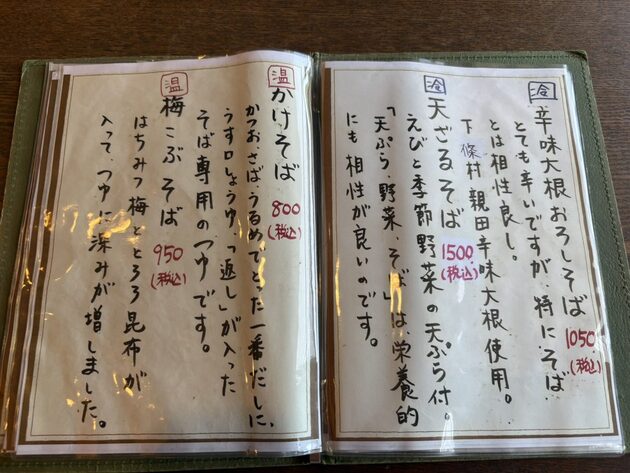 冷
辛味大根おろしそば
1050
(税込)
とても辛いですが、特にそば
とは相性良し。
下條村親田辛味大根使用。
冷
天ざるそば
1500
(税込)
えびと季節野菜の天ぷら付。
「天ぷら、野菜、そば」は、栄養的
にも相性が良いのです。
温
かけそば
800
(税込)
かつお、さば、うるめでとった一番だしに、
うす口しょうゆ「返し」が入った
そば専用のつゆです。
温
梅こぶそば
950
(税込)
はちみつ梅ととろろ昆布が
入って、つゆに深みが増しました。